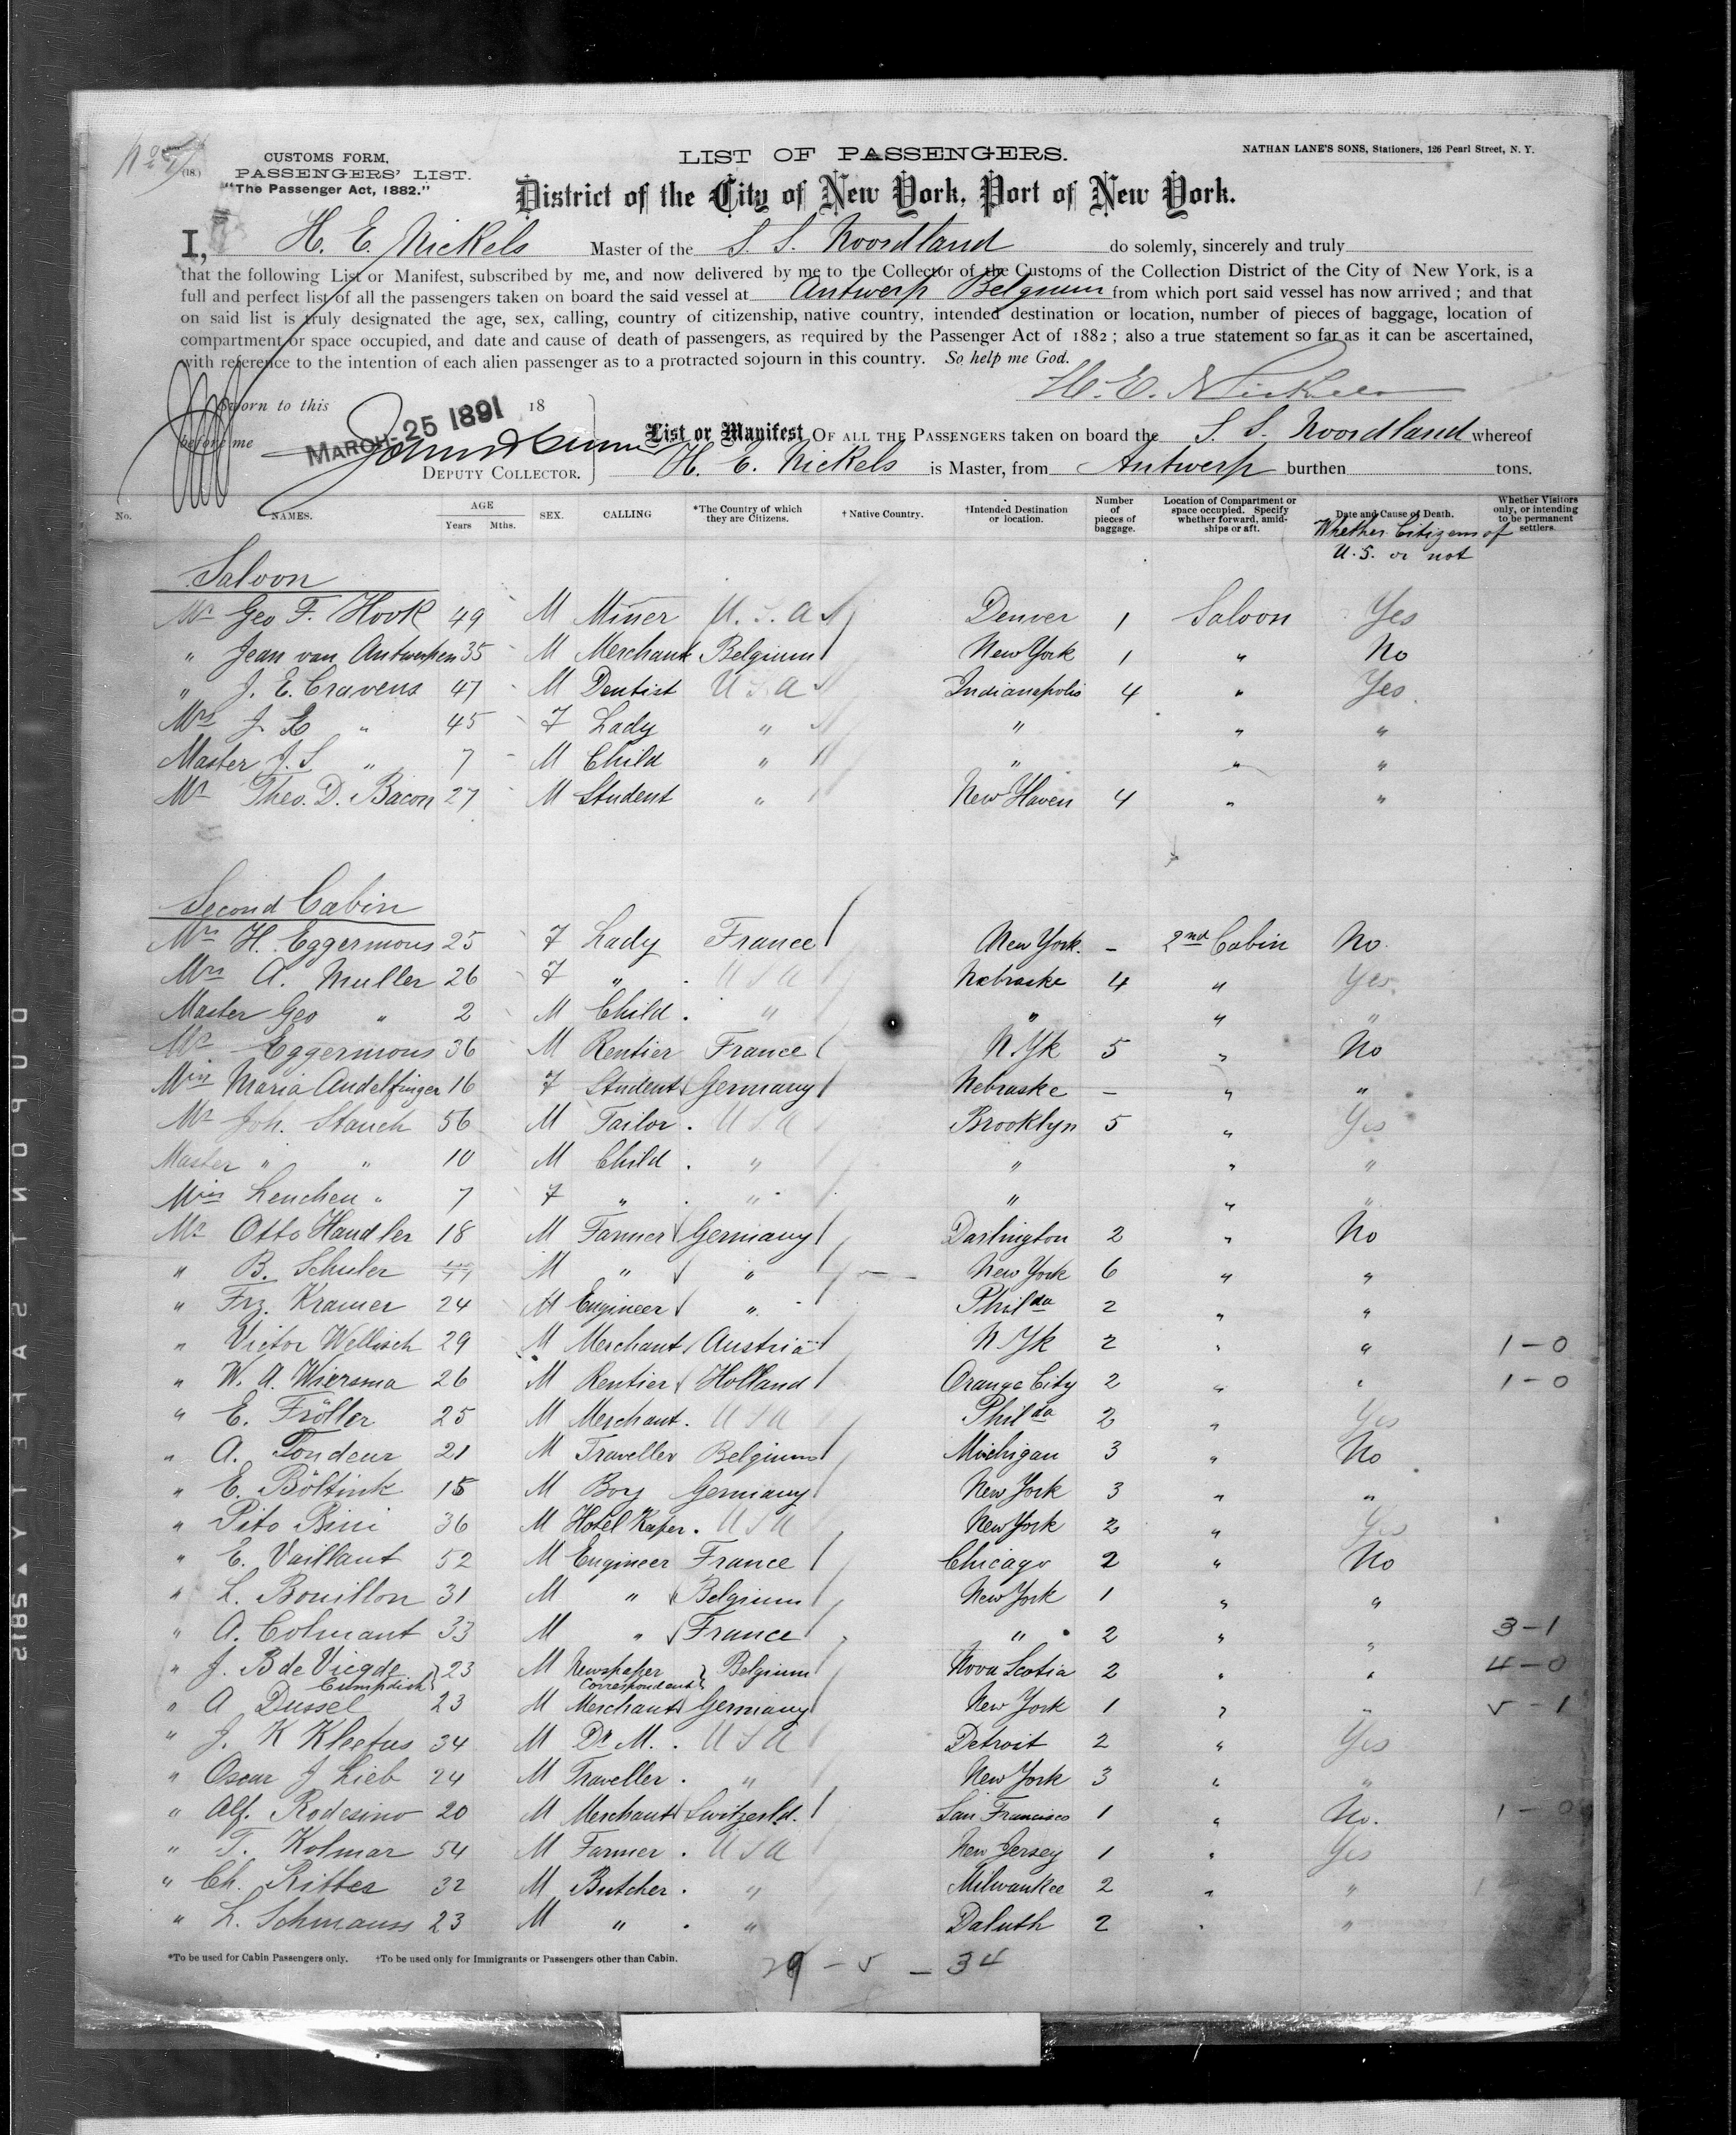 CUSTOMS FORM,
PASSENGERS' LIST.
"The Passenger Act, 1882."
(18.)
LIST OF PASSENGERS.
NATHAN LANE'S SONS, Stationers, 126 Pearl Street, N. Y.
District of the City of New York, Port of New York.
I, H. E. Nickels Master of the S. S. Noordland do solemnly, sincerely and truly
that the following List or Manifest, subscribed by me, and now delivered by me to the Collector of the Customs of the Collection District of the City of New York, is a
full and perfect list of all the passengers taken on board the said vessel at Antwerp Belgium from which port said vessel has now arrived; and that
on said list is truly designated the age, sex, calling, country of citizenship, native country, intended destination or location, number of pieces of baggage, location of
compartment or space occupied, and date and cause of death of passengers, as required by the Passenger Act of 1882; also a true statement so far as it can be ascertained,
with reference to the intention of each alien passenger as to a protracted sojourn in this country. So help me God.
H. E. Nickels
Sworn to this MARCH 25 1891 18
before me
DEPUTY COLLECTOR.
List or Manifest OF ALL THE PASSENGERS taken on board the S. S. Noordland whereof
H. E. Nickels is Master, from Antwerp burthen tons.
No. NAMES. AGE Years Mths. SEX. CALLING *The Country of which they are Citizens. †Native Country. †Intended Destination or location. Number of pieces of baggage. Location of Compartment or space occupied. Specify whether forward, amidships or aft. Date and Cause of Death. Whether Visitors only, or intending to be permanent settlers.
Whether Citizens of
U.S. or not
Saloon
Mr Geo F. Hook 49 M Miner U.S.A Denver 1 Saloon Yes
" Jean van Antwerpen 35 M Merchant Belgium New York 1 " No
" J. E. Cravens 47 M Dentist U S A Indianapolis 4 " Yes
Mrs J. E " 45 F Lady " " " "
Master J. S " 7 M Child " " " "
Mr Theo. D. Bacon 27 M Student " New Haven 4 " "
Second Cabin
Mrs H. Eggermons 25 F Lady France New York. - 2nd Cabin No.
Mrs A. Muller 26 F " U S A Nebraske 4 " Yes
Master Geo " 2 M Child " " " "
Mr Eggermons 36 M Rentier France N. Yk 5 " No
Miss Maria Andelfinger 16 F Student Germany Nebraske - " "
Mr Joh. Stauch 56 M Tailor U S A Brooklyn 5 " Yes
Master " " 10 M Child " " " "
Miss Lenchen " 7 F " " " " "
Mr Otto Handler 18 M Farmer Germany Darlington 2 " No
" B. Schuler M " " New York 6 " "
" Frz. Kramer 24 M Engineer " Philda 2 " "
" Victor Wellisch 29 M Merchant Austria N. Yk 2 " " 1 - 0
" W. A. Wiersma 26 M Rentier Holland Orange City 2 " " 1 - 0
" E. Fröller 25 M Merchant U S A Philda 2 " Yes
" A. Tondeur 21 M Traveller Belgium Michigan 3 " No
" E. Böltink 15 M Boy Germany New York 3 " "
" Pito Bini 36 M Hotel Keper U S A New York 2 " Yes
" E. Vaillant 52 M Engineer France Chicago 2 " No
" L. Bouillon 31 M " Belgium New York 1 " "
" A. Colmant 33 M " France " 2 " " 3 - 1
" J. B de Viegde 23 M Newspaper Belgium Nova Scotia 2 " " 4 - 0
Cumpdich Correspondent
" A Dussel 23 M Merchant Germany New York 1 " " 5 - 1
" J. K Kleefus 34 M Dr M. U S A Detroit 2 " Yes
" Oscar J Lieb 24 M Traveller " New York 3 " "
" Alf. Rodesino 20 M Merchant Switzerld. San Francisco 1 " No. 1 - 0
" T. Kolmar 54 M Farmer U S A New Jersey 1 " Yes
" Ch. Ritter 32 M Butcher " Milwaukee 2 " "
" L. Schmauss 23 M " " Daluth 2 " "
*To be used for Cabin Passengers only. †To be used only for Immigrants or Passengers other than Cabin.
29 - 5 - 34